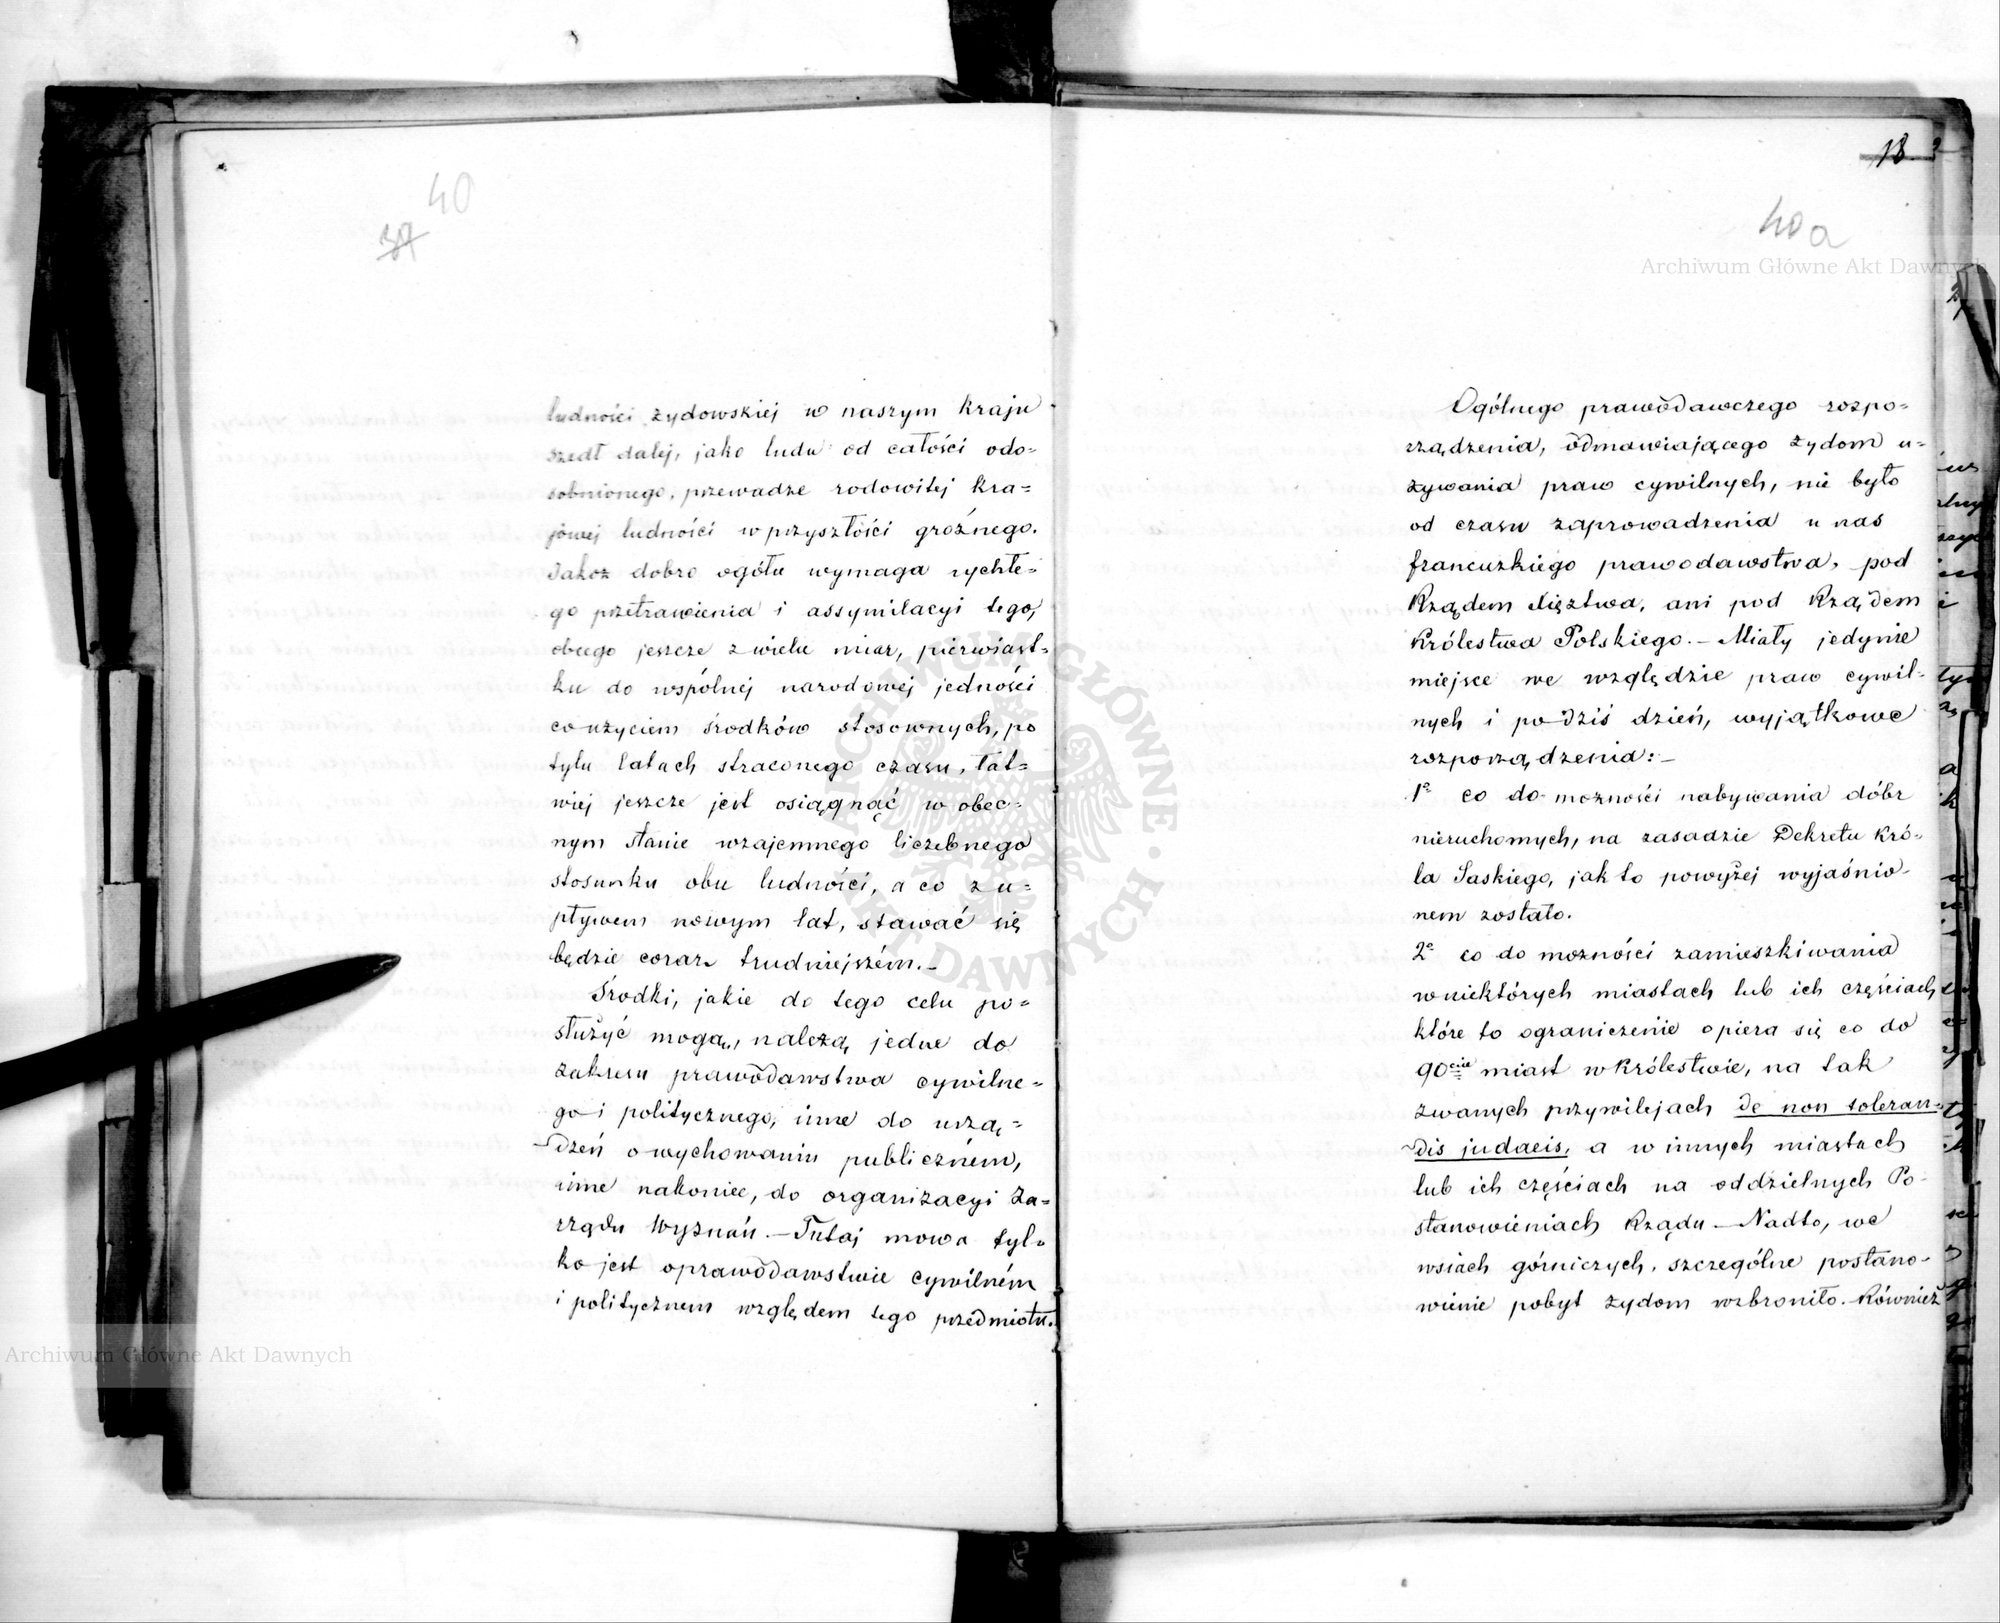 40
37
ludności żydowskiej w naszym kraju
szedł dalej, jako ludu od całości odo-
sobnionego, przewadze rodowitej kra-
jowej ludności w przyszłości groźnego.
Jakoż dobro ogółu wymaga rychłe-
go przetrawienia i assymilacyi tego,
obcego jeszcze z wielu miar, pierwiast-
ku do wspólnej narodowej jedności
co użyciem środków stosownych, po
tylu latach straconego czasu, łat-
wiej jeszcze jest osiągnąć w obec-
nym stanie wzajemnego liczebnego
stosunku obu ludności, a co z u-
pływem nowym lat, stawać się
będzie coraz trudniejszém.-
Środki, jakie do tego celu po-
służyć mogą, należą, jedne do
zakresu prawodawstwa cywilne-
go i politycznego, inne do urzą-
dzeń o wychowaniu publiczném,
inne nakoniec, do organizacyi Za-
rządu Wyznań. - Tutaj mowa tyl-
ko jest o prawodawstwie cywilném
i politycznem względem tego przedmiotu.
18
40 a
Ogólnego prawodawczego rozpo-
rządzenia, odmawiającego żydom u-
żywania praw cywilnych, nie było
od czasu zaprowadzenia u nas
francuzkiego prawodawstwa, pod
Rządem Xięztwa, ani pod Rządem
Królestwa Polskiego. - Miały jedynie
miejsce we względzie praw cywil-
nych i po dziś dzień, wyjątkowe
rozporządzenia: -
1e co do możności nabywania dóbr
nieruchomych, na zasadzie Dekretu Kró-
la Saskiego, jak to powyżej wyjaśnio-
nem zostało.
2e co do możności zamieszkiwania
w niektórych miastach lub ich częściach,
które to ograniczenie opiera się co do
90ciu miast w Królestwie, na tak
zwanych przywilejach de non toleran-
dis judaeis, a w innych miastach
lub ich częściach na oddzielnych Po-
stanowieniach Rządu - Nadto, we
wsiach górniczych, szczególne postano-
wienie pobyt żydom wzbroniło. Również
Archiwum Główne Akt Dawnych
Archiwum Główne Akt Dawnych
ARCHIWUM GŁÓWNE AKT DAWNYCH